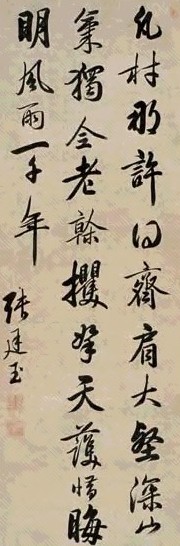 凡材那許得齊肩大壑深山
氣獨全老榦攫拏天護惜晦
明風雨一千年
張廷玉